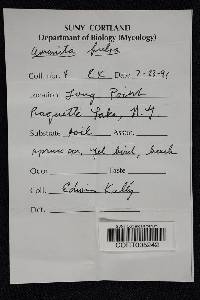 SUNY CORTLAND
Department of Biology (Mycology)
Amanita fulva
Coll. no. 8 EK Date 7-23-91
Location Long Point
Raquette Lake, N.Y.
Substrate soil Assoc.
spruce, yel birch, beech
Odor Taste
Coll. Edwin Kelly
Det.